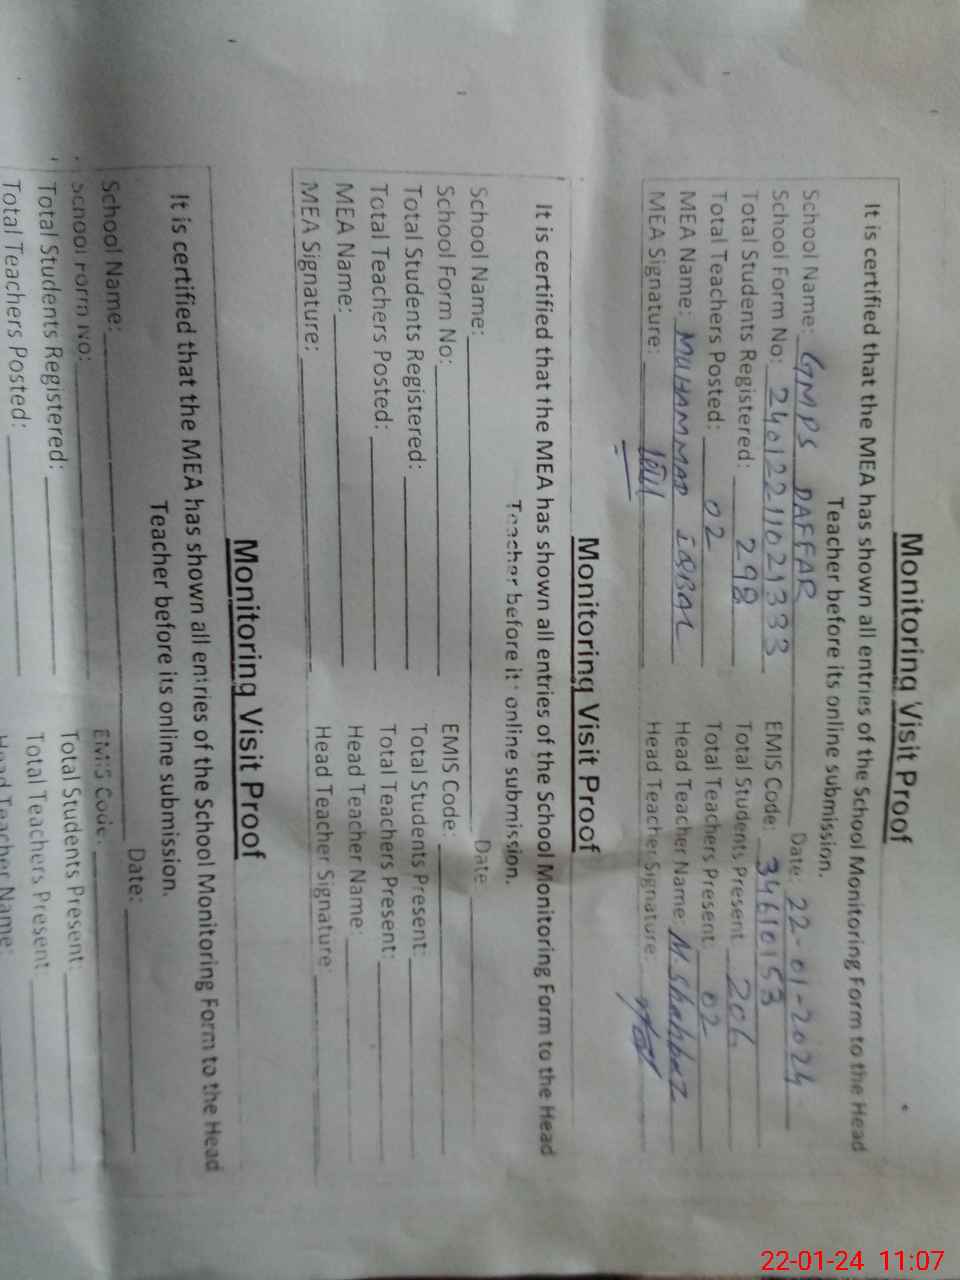 Monitoring Visit Proof
It is certified that the MEA has shown all entries of the School Monitoring Form to the Head
Teacher before its online submission.
School Name: GMPS DAFFAR Date: 22-01-2024
School Form No: 24012211021333 EMIS Code: 34610153
Total Students Registered: 298 Total Students Present 206
Total Teachers Posted: 02 Total Teachers Present 02
MEA Name: MUHAMMAD IQBAL Head Teacher Name: M. Shahbaz
MEA Signature: Head Teacher Signature:
Monitoring Visit Proof
It is certified that the MEA has shown all entries of the School Monitoring Form to the Head
Teacher before its online submission.
School Name: Date
School Form No: EMIS Code:
Total Students Registered: Total Students Present:
Total Teachers Posted: Total Teachers Present:
MEA Name: Head Teacher Name:
MEA Signature: Head Teacher Signature:
Monitoring Visit Proof
It is certified that the MEA has shown all entries of the School Monitoring Form to the Head
Teacher before its online submission.
School Name: Date:
School Form No: EMIS Code:
Total Students Registered: Total Students Present:
Total Teachers Posted: Total Teachers Present
Head Teacher Name:
22-01-24 11:07